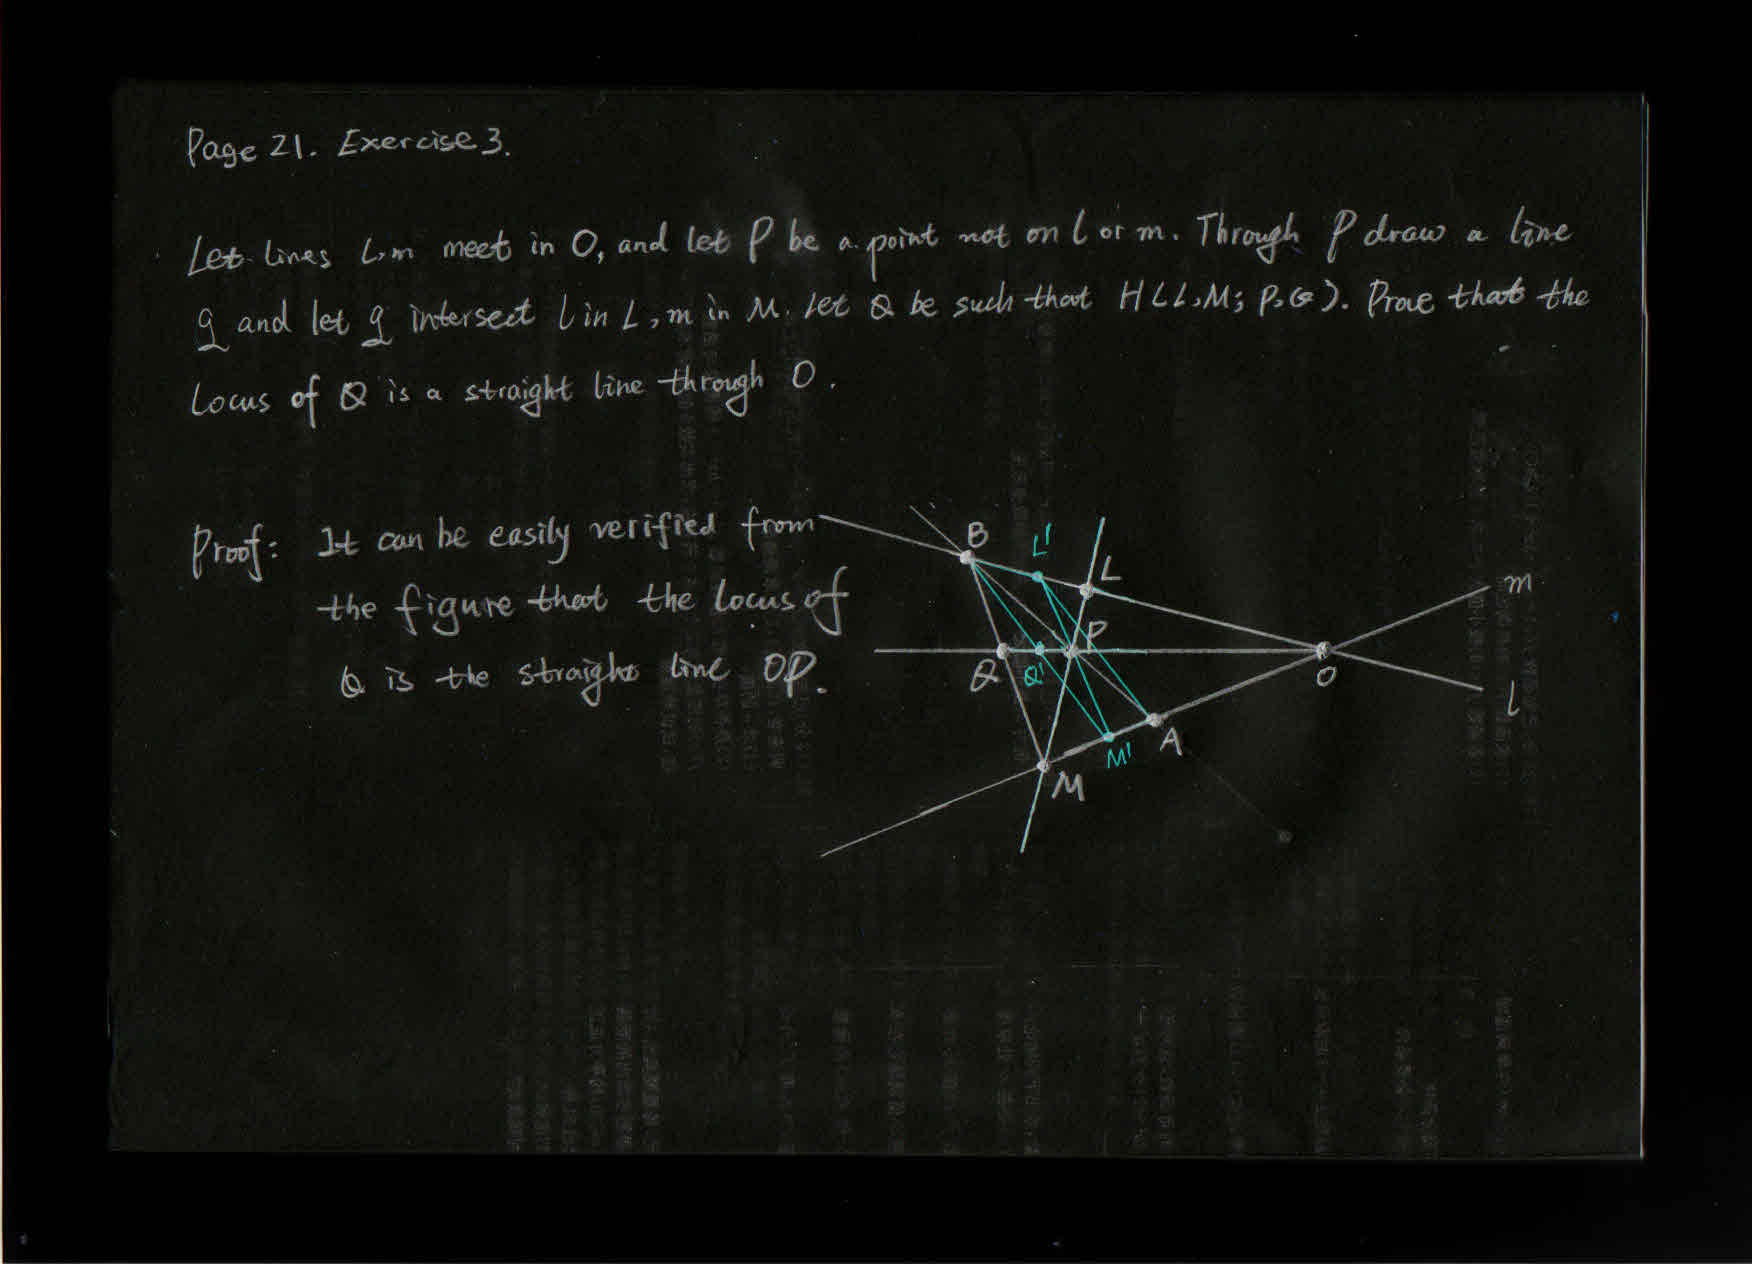 Page 21. Exercise 3.
Let lines l, m meet in O, and let P be a point not on l or m. Through P draw a line
q and let q intersect l in L, m in M. Let Q be such that H(L,M; P,Q). Prove that the
locus of Q is a straight line through O.
Proof: It can be easily verified from
the figure that the locus of
Q is the straight line OP.
B
L'
L
m
P
Q
Q'
O
l
A
M'
M